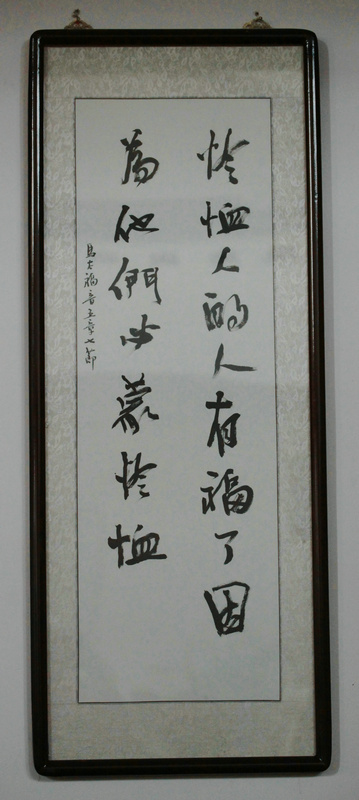 怜恤人的人有福了因
為他們必蒙怜恤
馬太福音五章七節